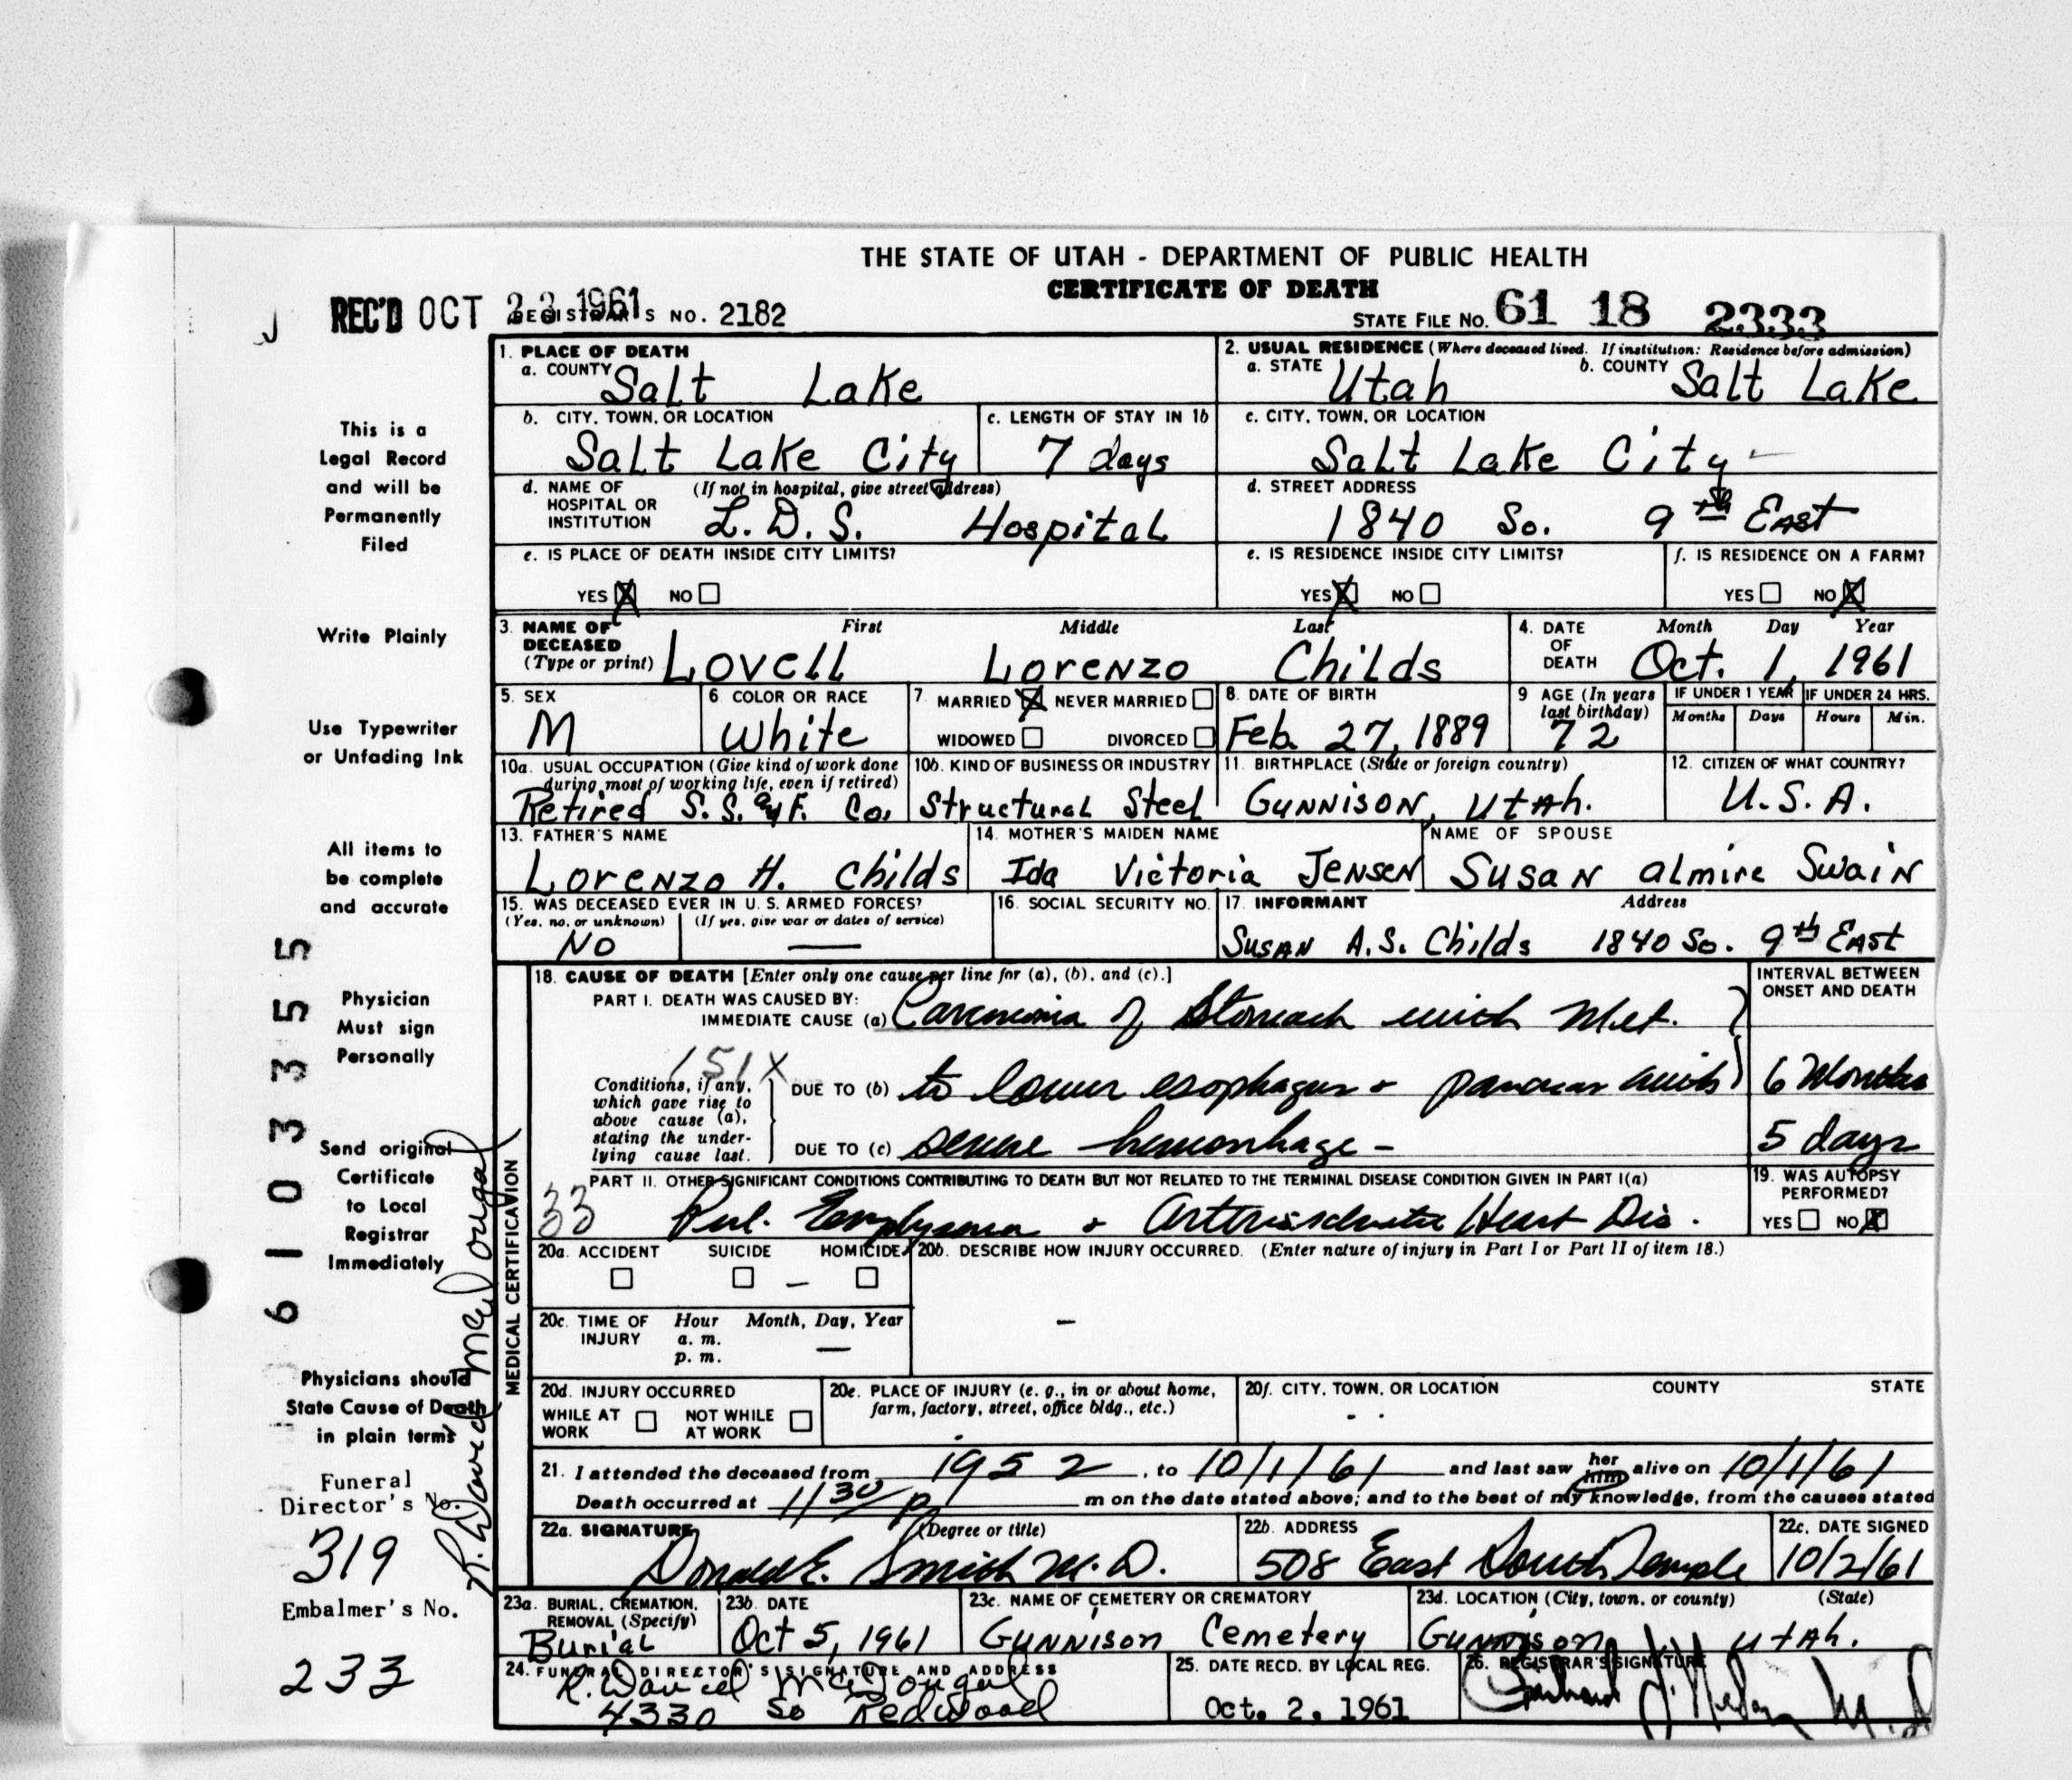 THE STATE OF UTAH - DEPARTMENT OF PUBLIC HEALTH
CERTIFICATE OF DEATH
REC'D OCT 23 1961 REGISTRAR'S NO. 2182
STATE FILE NO. 61 18 2333
1. PLACE OF DEATH
a. COUNTY Salt Lake
2. USUAL RESIDENCE (Where deceased lived. If institution: Residence before admission)
a. STATE Utah b. COUNTY Salt Lake
b. CITY, TOWN, OR LOCATION Salt Lake City
c. LENGTH OF STAY IN 1b 7 days
c. CITY, TOWN, OR LOCATION Salt Lake City
d. NAME OF HOSPITAL OR INSTITUTION (If not in hospital, give street address) L.D.S. Hospital
d. STREET ADDRESS 1840 So. 9th East
e. IS PLACE OF DEATH INSIDE CITY LIMITS? YES X NO
e. IS RESIDENCE INSIDE CITY LIMITS? YES X NO
f. IS RESIDENCE ON A FARM? YES NO X
3. NAME OF DECEASED (Type or print) First Middle Last
Lovell Lorenzo Childs
4. DATE OF DEATH Month Day Year
Oct. 1, 1961
5. SEX M
6. COLOR OR RACE White
7. MARRIED X NEVER MARRIED
WIDOWED DIVORCED
8. DATE OF BIRTH Feb. 27, 1889
9 AGE (In years last birthday) 72
IF UNDER 1 YEAR Months Days
IF UNDER 24 HRS. Hours Min.
10a. USUAL OCCUPATION (Give kind of work done during most of working life, even if retired)
Retired S.S. & F. Co.
10b. KIND OF BUSINESS OR INDUSTRY Structural Steel
11. BIRTHPLACE (State or foreign country) Gunnison, Utah.
12. CITIZEN OF WHAT COUNTRY? U.S.A.
13. FATHER'S NAME Lorenzo H. Childs
14. MOTHER'S MAIDEN NAME Ida Victoria Jensen
NAME OF SPOUSE Susan Almire Swain
15. WAS DECEASED EVER IN U.S. ARMED FORCES?
(Yes, no, or unknown) (If yes, give war or dates of service)
No —
16. SOCIAL SECURITY NO.
17. INFORMANT Address
Susan A.S. Childs 1840 So. 9th East
MEDICAL CERTIFICATION
18. CAUSE OF DEATH [Enter only one cause per line for (a), (b), and (c).]
INTERVAL BETWEEN ONSET AND DEATH
PART I. DEATH WAS CAUSED BY:
IMMEDIATE CAUSE (a) Carcinoma of Stomach with Met.
151X
Conditions, if any, which gave rise to above cause (a), stating the underlying cause last.
DUE TO (b) to lower esophagus & pancreas with 6 Months
DUE TO (c) severe hemorrhage - 5 days
PART II. OTHER SIGNIFICANT CONDITIONS CONTRIBUTING TO DEATH BUT NOT RELATED TO THE TERMINAL DISEASE CONDITION GIVEN IN PART I(a)
33 Pul. Emphysema & Arteriosclerotic Heart Dis.
19. WAS AUTOPSY PERFORMED? YES NO X
20a. ACCIDENT SUICIDE HOMICIDE
20b. DESCRIBE HOW INJURY OCCURRED. (Enter nature of injury in Part I or Part II of item 18.)
20c. TIME OF INJURY Hour Month, Day, Year
a. m.
p. m.
20d. INJURY OCCURRED
WHILE AT WORK NOT WHILE AT WORK
20e. PLACE OF INJURY (e. g., in or about home, farm, factory, street, office bldg., etc.)
20f. CITY, TOWN, OR LOCATION COUNTY STATE
21. I attended the deceased from 1952, to 10/1/61 and last saw her him alive on 10/1/61
Death occurred at 11 30 p m on the date stated above; and to the best of my knowledge, from the causes stated
22a. SIGNATURE (Degree or title) Donald E. Smith M.D.
22b. ADDRESS 508 East South Temple
22c. DATE SIGNED 10/2/61
23a. BURIAL, CREMATION, REMOVAL (Specify) Burial
23b. DATE Oct 5, 1961
23c. NAME OF CEMETERY OR CREMATORY Gunnison Cemetery
23d. LOCATION (City, town, or county) (State) Gunnison, Utah.
24. FUNERAL DIRECTOR'S SIGNATURE AND ADDRESS
R. David McDougal
4330 So Redwood
25. DATE RECD. BY LOCAL REG. Oct. 2, 1961
26. REGISTRAR'S SIGNATURE
This is a
Legal Record
and will be
Permanently
Filed
Write Plainly
Use Typewriter
or Unfading Ink
All items to
be complete
and accurate
Physician
Must sign
Personally
Send original
Certificate
to Local
Registrar
Immediately
Physicians should
State Cause of Death
in plain terms
Funeral
Director's No.
319
Embalmer's No.
233
R. David McDougal
6103355